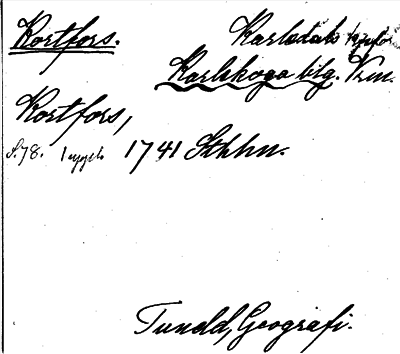 Kortfors. Karlstads
Karlskoga btg. Vrm.
Kortfors,
S.78. 1 uppl. 1741 Sthhn.
Tuneld, Geografi.